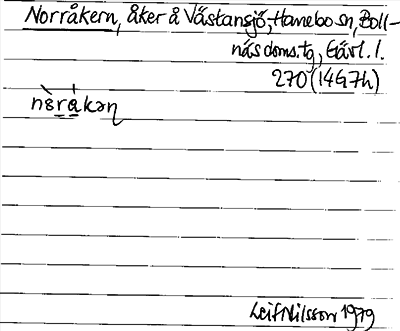 Norråkern, åker å Västansjö, Hanebo sn, Boll-
näs doms. tg, Gävl. l.
270 (14G7h)
nòrákəɳ
Leif Nilsson 1979